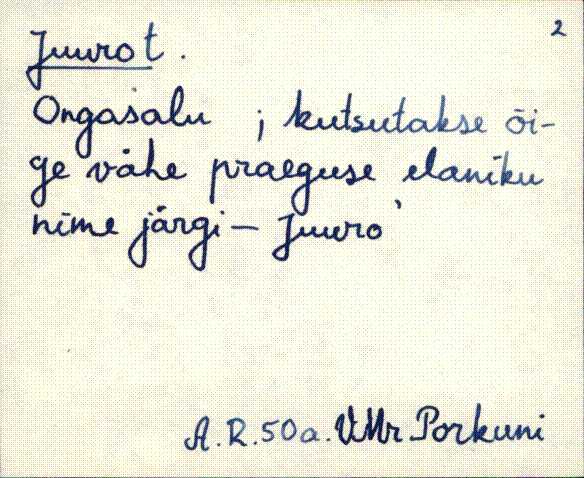 2
Juuro t.
Ongasalu ; kutsutakse õi-
ge vähe praeguse elaniku
nime järgi – Juuro'
A.R. 50 a. VMr Porkuni